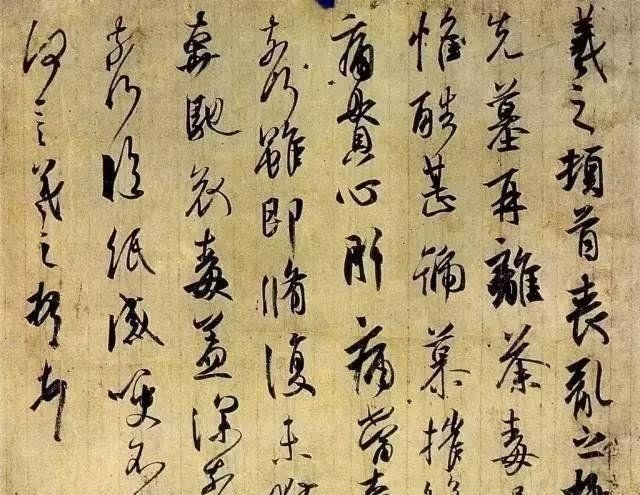 羲之頓首喪亂之極
先墓再離荼毒
惟酷甚號慕摧
痛貫心肝痛當奈
奈何雖即脩復未
奔馳哀毒益深奈
奈何臨紙感哽不
何言羲之頓首